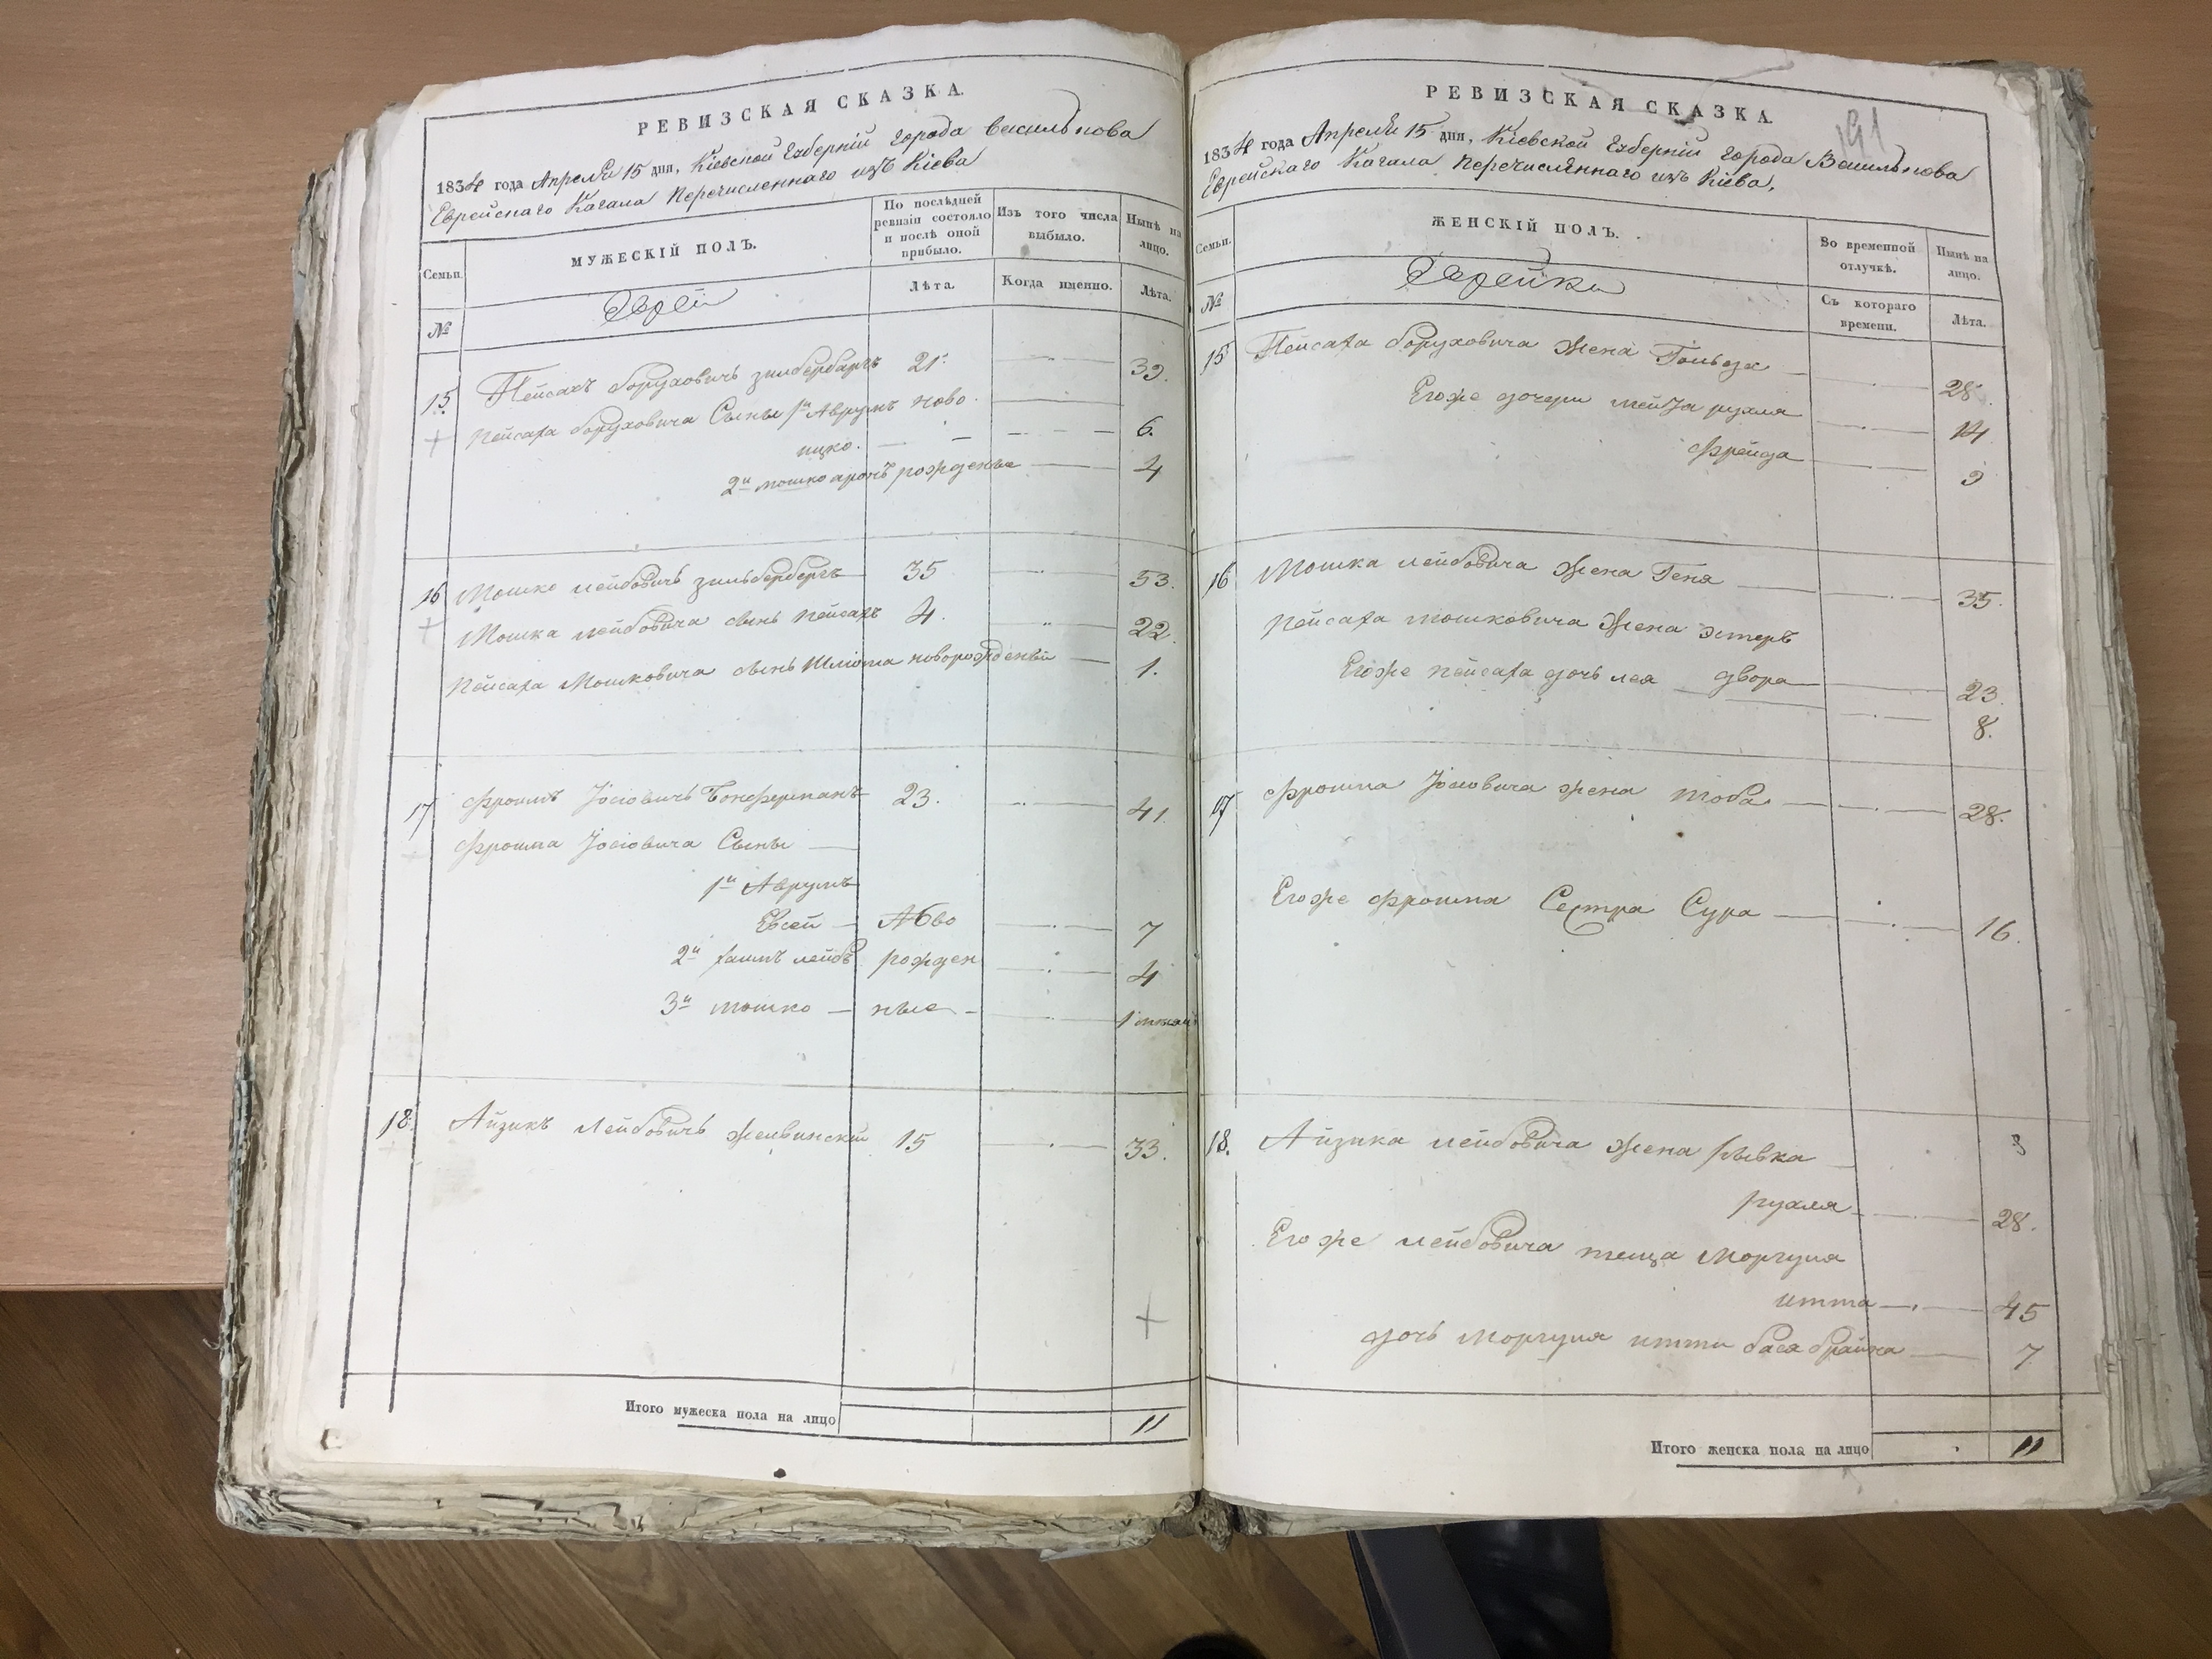 РЕВИЗСКАЯ СКАЗКА.
1834 года Апреля 15 дня, Кіевской Губерніи города Василькова
Еврейскаго Кагала перечисленнаго изъ Кіева
Семьи.
МУЖЕСКІЙ ПОЛЪ.
По послѣдней ревизіи состояло и послѣ оной прибыло.
Изъ того числа выбыло.
Нынѣ на лицо.
№
Евреи
Лѣта.
Когда именно.
Лѣта.
15 Пейсахъ боруховичъ зильбербергъ 21. 39.
Пейсаха боруховича Сыны 1й Аврумъ ново
ицко. 6.
2й мошко аронъ рожденые 4
16 Мошко лейбовичъ зильбербергъ 35 53.
Мошка лейбовича сынъ пейсахъ 4. 22.
Пейсаха Мошковича сынъ Шліома новорожденый 1.
17 Фроимъ Іосіовичъ 23. 41.
Фроима Іосіовича Сыны
1й Аврумъ
Евсей Ново 7
2й хаимъ лейбъ рожден 4
3й мошко ные 1
18. Айзикъ Лейбовичъ 15 33.
Итого мужеска пола на лицо 11
РЕВИЗСКАЯ СКАЗКА.
191
1834 года Апреля 15 дня, Кіевской Губерніи города Василькова
Еврейскаго Кагала перечисленнаго изъ Кіева.
Семьи.
ЖЕНСКІЙ ПОЛЪ.
Во временной отлучкѣ.
Нынѣ на лицо.
№
Еврейки
Съ котораго времени.
Лѣта.
15 Пейсаха боруховича жена 28.
Егоже дочери рухля 14
фрейда 3
16 Мошка лейбовича жена Геня 35.
Пейсаха мошковича жена эстеръ
двора 23.
Егоже пейсаха дочь лея 8.
17 Фроима Іосіовича жена тоба 28.
Егоже фроима Сестра Сура 16.
18. Айзика лейбовича жена рывка
рухля 28.
Егоже лейбовича теща Моргуля
итта 45
дочь моргуля итти бася брайна 7
Итого женска пола на лицо 11